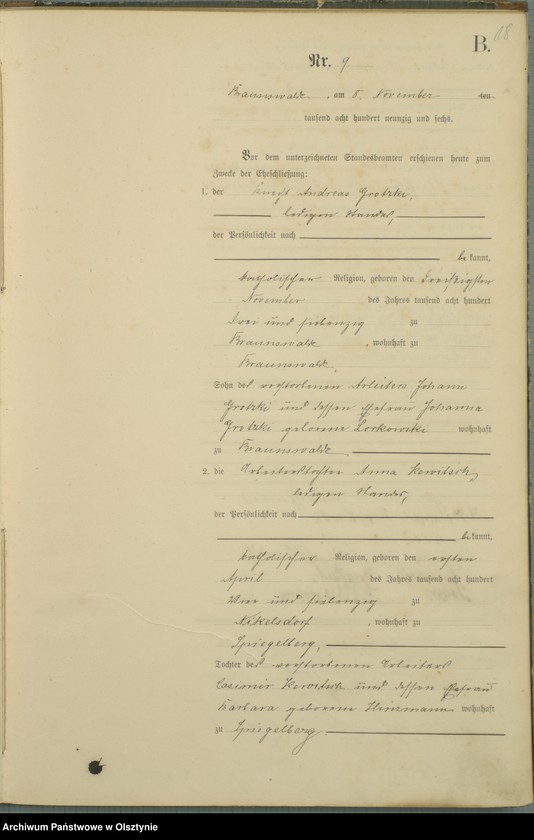 B. 18
Nr. 9
Braunswalde, am 8. November
tausend acht hundert neunzig und sechs.
Vor dem unterzeichneten Standesbeamten erschienen heute zum
Zwecke der Eheschließung:
1. der Knecht Andreas Grotzki,
ledigen Standes,
der Persönlichkeit nach
bekannt,
katholischer Religion, geboren den dreißigsten
November des Jahres tausend acht hundert
drei und siebenzig zu
Braunswalde, wohnhaft zu
Braunswalde,
Sohn des verstorbenen Arbeiters Johann
Grotzki und dessen Ehefrau Johanna
Grotzki geborene Lorkowski wohnhaft
zu Braunswalde.
2. die Arbeitertochter Anna Kewitsch,
ledigen Standes,
der Persönlichkeit nach
bekannt,
katholischer Religion, geboren den ersten
April des Jahres tausend acht hundert
vier und siebenzig zu
Nikelsdorf, wohnhaft zu
Spiegelberg,
Tochter des verstorbenen Arbeiters
Casimir Kewitsch und dessen Ehefrau
Barbara geborene Hinzmann wohnhaft
zu Spiegelberg
Archiwum Państwowe w Olsztynie